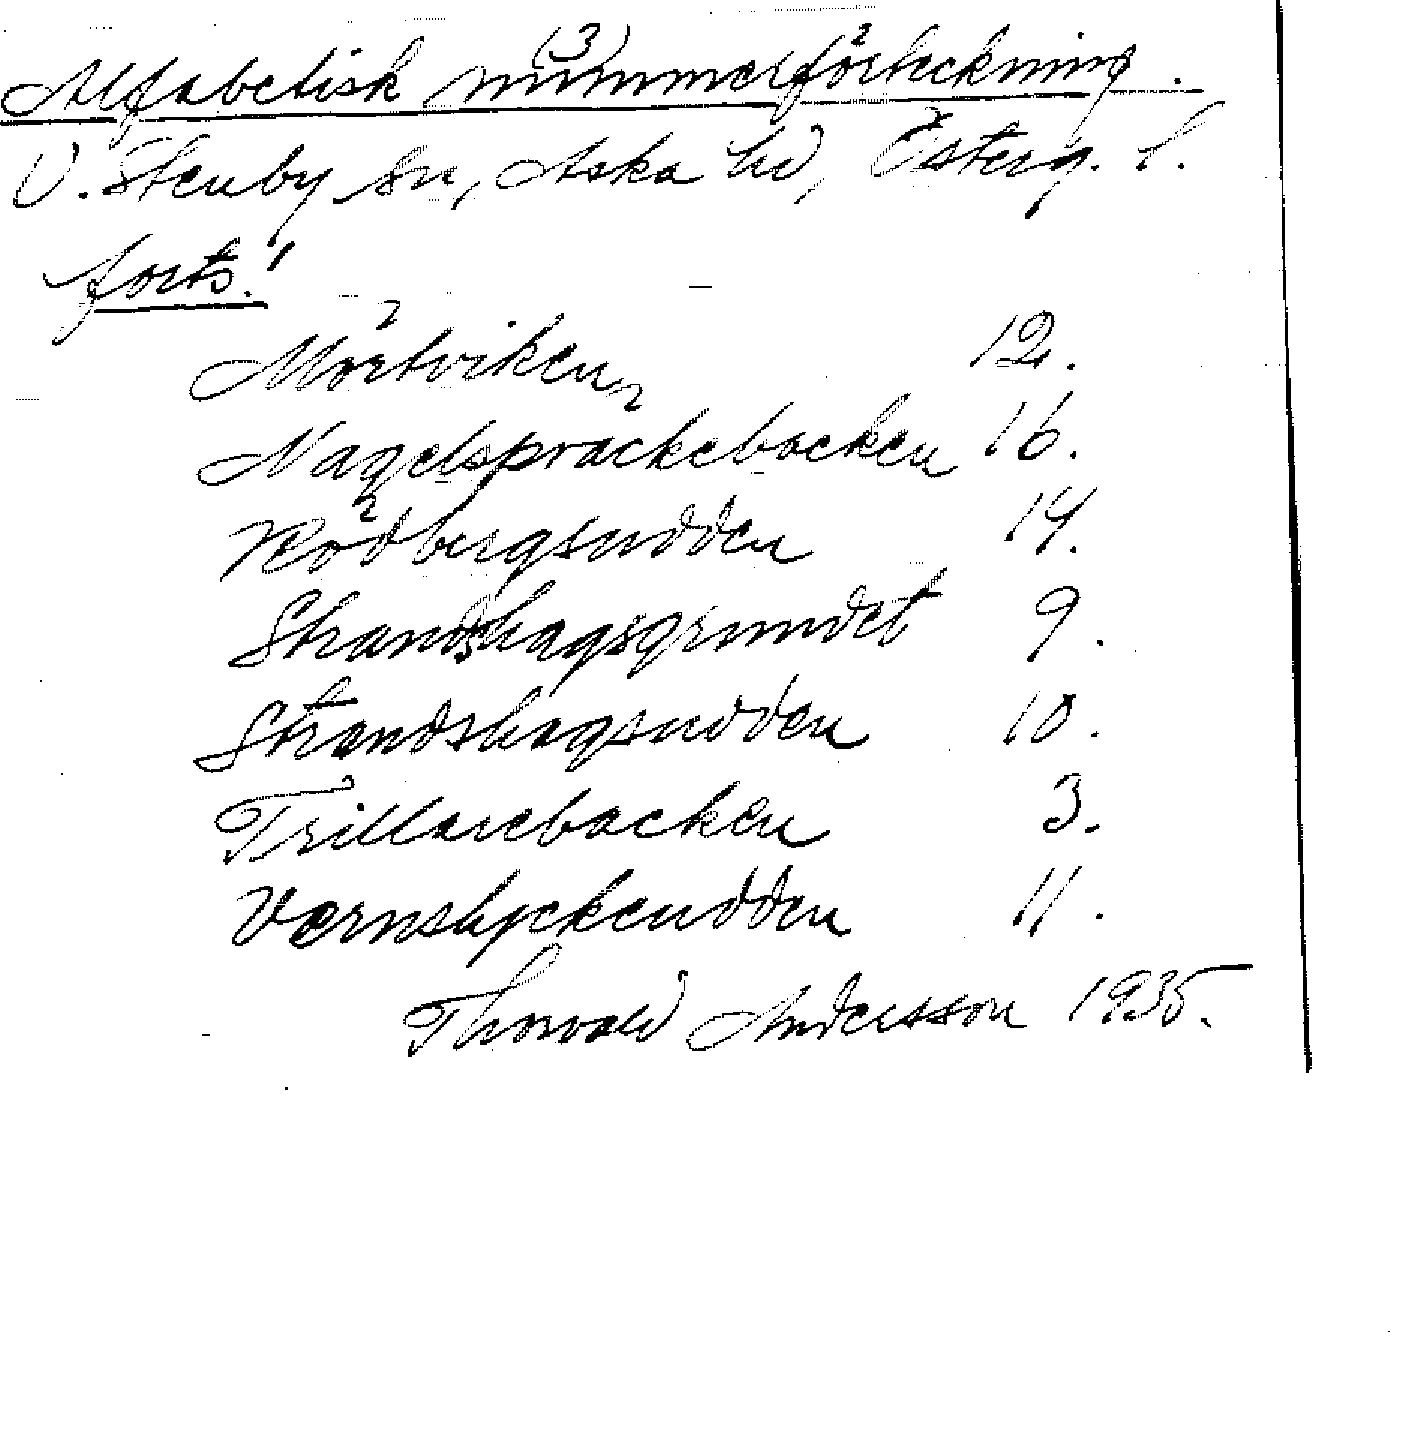 (3)
Alfabetisk nummerförteckning.
V. Stenby sn, Aska hd, Österg. l.
forts.!
Mörtviken 12.
Nagelspräckebacken 16.
Rödbergsudden 14.
Strandshagsgrundet 9.
Strandshagsudden 10.
Trillarebacken 3.
Varnslyckeudden 11.
Thorvald Andersson 1935.